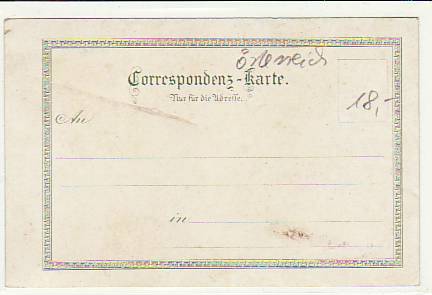 Österreich
Correspondenz-Karte.
Nur für die Adresse.
18,-
An
in